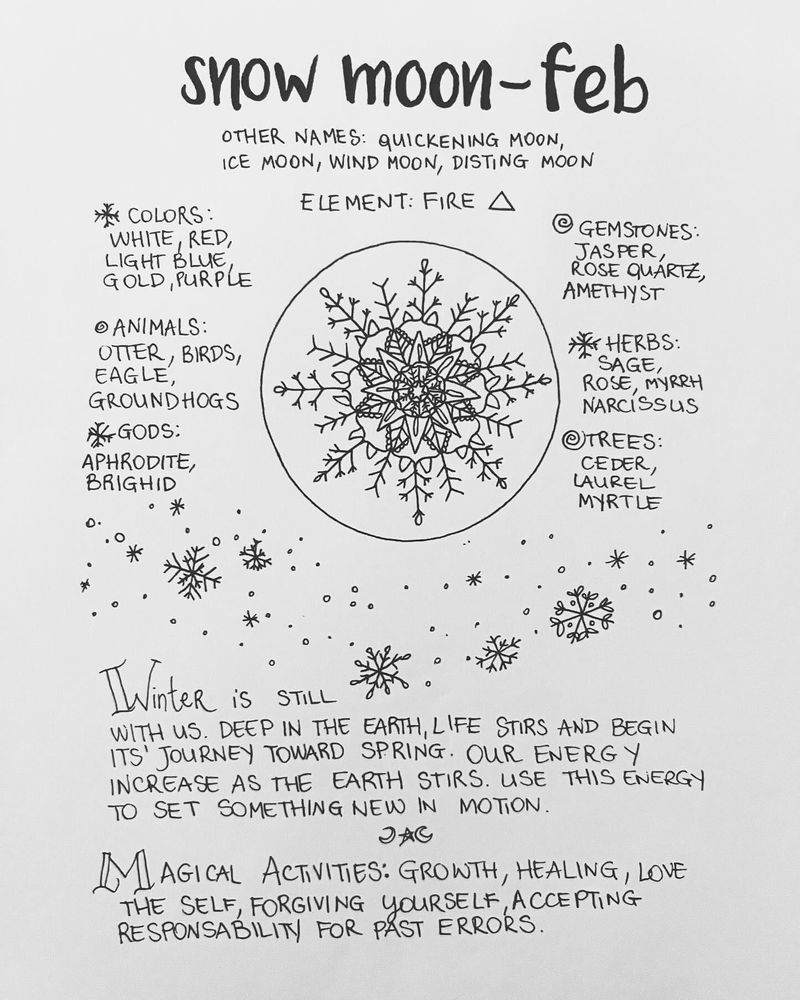 snow moon-feb
OTHER NAMES: QUICKENING MOON,
ICE MOON, WIND MOON, DISTING MOON
ELEMENT: FIRE
COLORS:
WHITE, RED,
LIGHT BLUE,
GOLD, PURPLE
ANIMALS:
OTTER, BIRDS,
EAGLE,
GROUNDHOGS
GODS:
APHRODITE,
BRIGHID
GEMSTONES:
JASPER,
ROSE QUARTZ,
AMETHYST
HERBS:
SAGE,
ROSE, MYRRH
NARCISSUS
TREES:
CEDER,
LAUREL
MYRTLE
Winter is STILL
WITH US. DEEP IN THE EARTH, LIFE STIRS AND BEGIN
ITS' JOURNEY TOWARD SPRING. OUR ENERGY
INCREASE AS THE EARTH STIRS. USE THIS ENERGY
TO SET SOMETHING NEW IN MOTION.
MAGICAL ACTIVITIES: GROWTH, HEALING, LOVE
THE SELF, FORGIVING YOURSELF, ACCEPTING
RESPONSABILITY FOR PAST ERRORS.